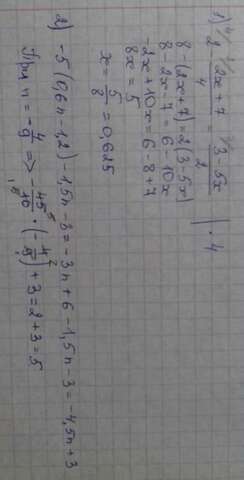 1) 2 - (2x+7)/4 = (3-5x)/2 | · 4
8 - (2x+7) = 2(3-5x)
8 - 2x - 7 = 6 - 10x
-2x + 10x = 6 - 8 + 7
8x = 5
x = 5/8 = 0,625
2) -5(0,6n-1,2) - 1,5n - 3 = -3n + 6 - 1,5n - 3 = -4,5n + 3
При n = -4/9 => -45/10 · (-4/9) + 3 = 2 + 3 = 5